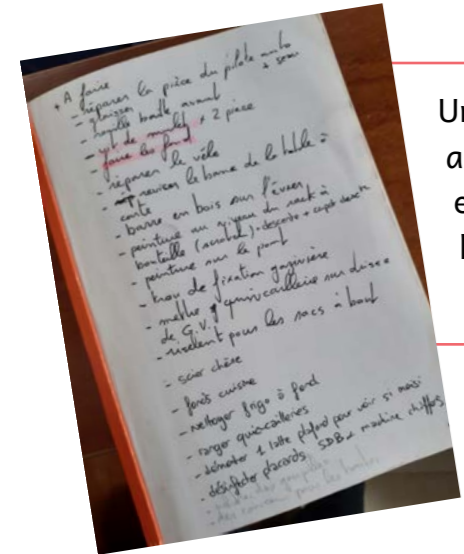 A faire
- réparer la pièce du pilote auto
- glaisser
- 
- vit de mulet + 2 pièce
- faire les fond
- réparer le vélo
- revisser la barre de la table à
carte
- barre en bois sur l'évier
- peinture au niveau du rack à
bouteille (scratch) + descente + capot descente
- peinture sur le pont
- trou de fixation gazinière
- mettre quincaillerie sur drisse
de G.V.
- pour les sacs à bout
- scier chêne
- fonds cuisine
- nettoyer frigo à fond
- ranger quincailleries
- démonter 1 latte plafond pour voir si moisi
- désinfecter placards SDB + machine chiffons
Un
a
e